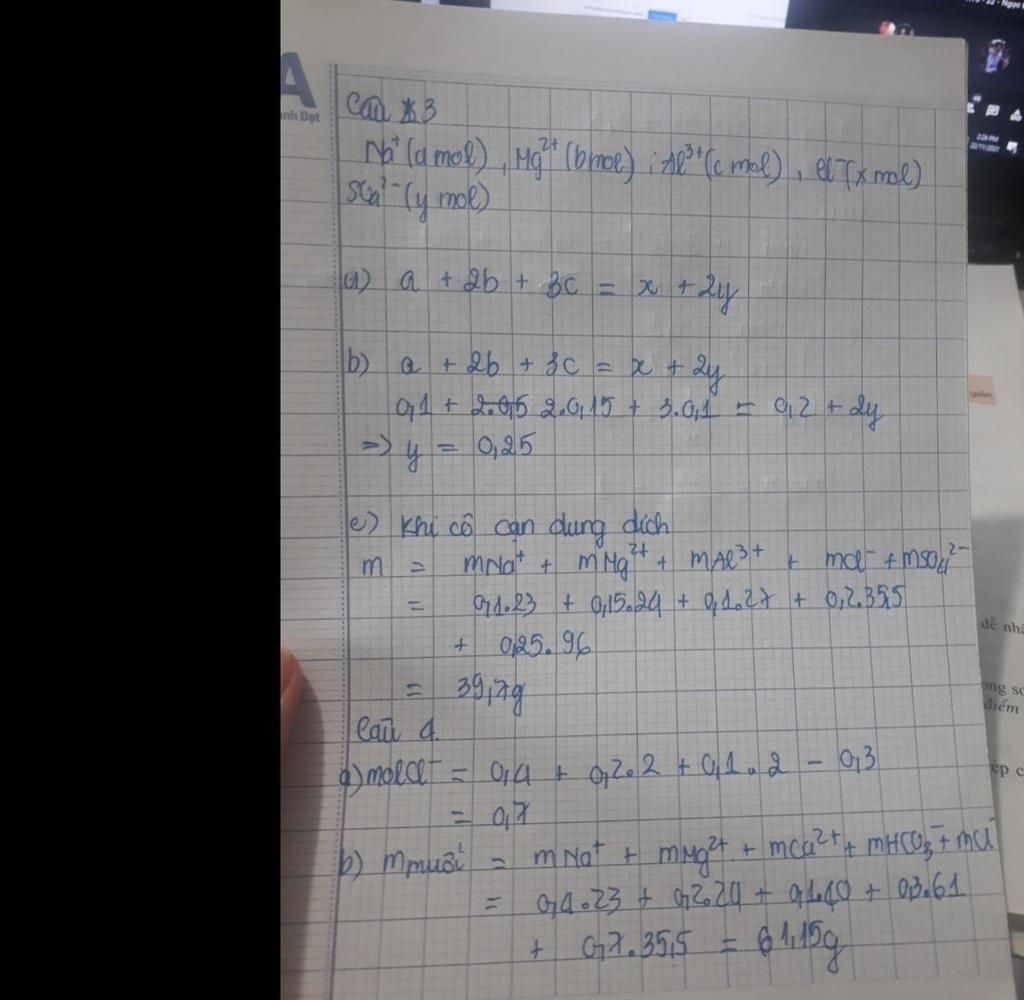 A
anh Đạt
Câu 3
Na⁺ (a mol), Mg²⁺ (b mol); Al³⁺ (c mol), Cl⁻ (x mol)
SO₄²⁻ (y mol)
a) a + 2b + 3c = x + 2y
b) a + 2b + 3c = x + 2y
0,1 + 2.0,15 + 3.0,1 = 0,2 + 2y
=> y = 0,25
c) Khi cô cạn dung dịch
m = mNa⁺ + mMg²⁺ + mAl³⁺ + mCl⁻ + mSO₄²⁻
= 0,1.23 + 0,15.24 + 0,1.27 + 0,2.35,5
+ 0,25.96
= 39,7g
Câu 4.
a) molCl⁻ = 0,4 + 0,2.2 + 0,1.2 - 0,3
= 0,7
b) m muối = mNa⁺ + mMg²⁺ + mCa²⁺ + mHCO₃⁻ + mCl⁻
= 0,4.23 + 0,2.24 + 0,1.40 + 0,3.61
+ 0,7.35,5 = 61,15g
dễ nh
ong so
điểm
ép c